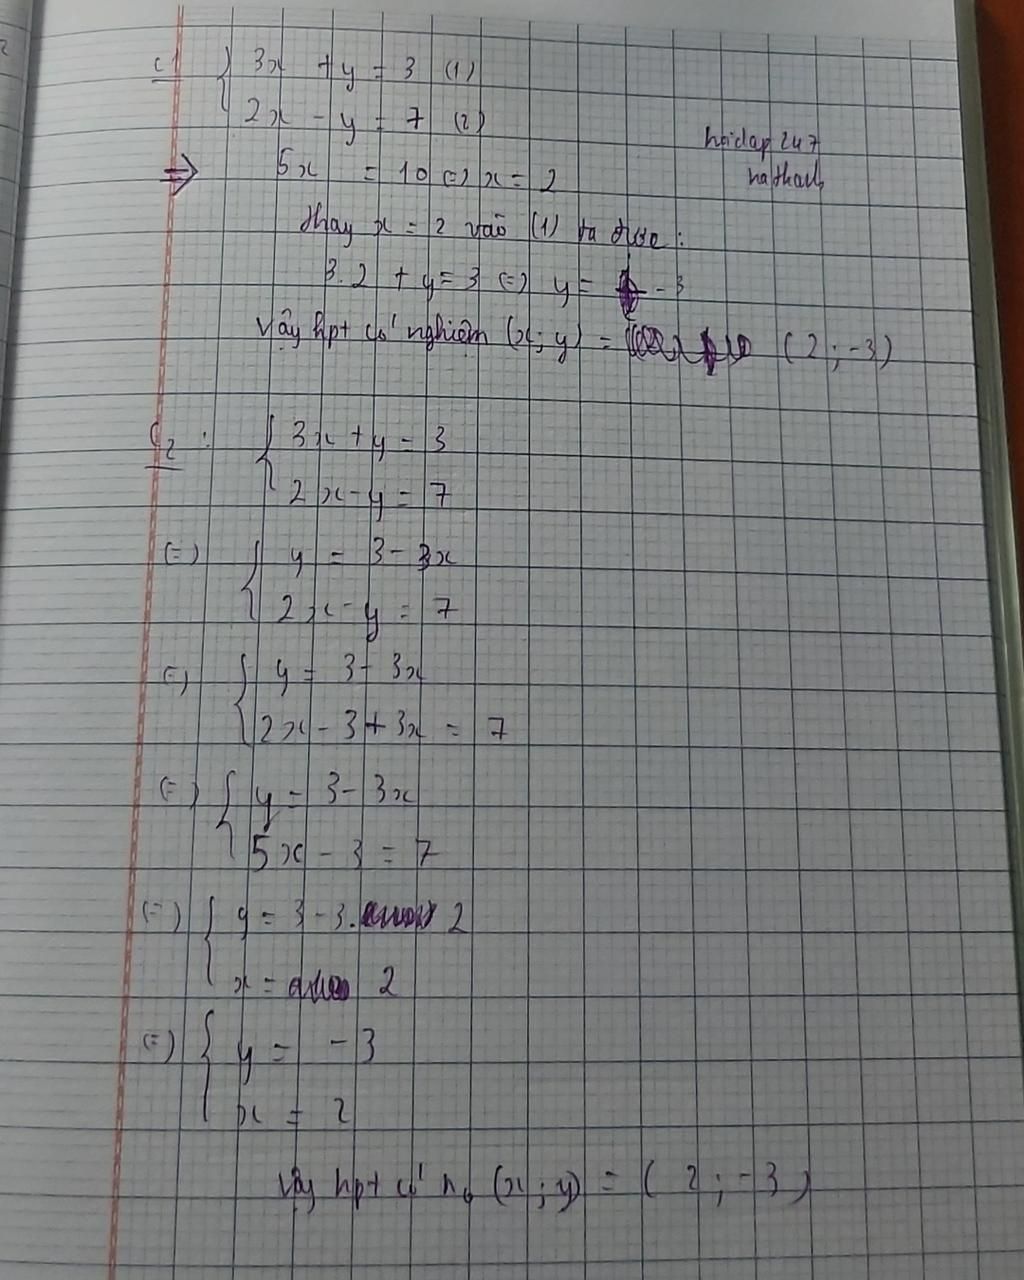 C1 { 3x + y = 3 (1)
2x - y = 7 (2)
hoidap 247
=> 5x = 10 <=> x = 2
thay x = 2 vào (1) ta được :
3.2 + y = 3 <=> y = -3
Vậy hpt có nghiệm (x; y) = (2; -3)
C2 : { 3x + y = 3
2x - y = 7
(=) { y = 3 - 3x
2x - y = 7
(=) { y = 3 - 3x
2x - 3 + 3x = 7
(=) { y = 3 - 3x
5x - 3 = 7
(=) { y = 3 - 3. 2
x = 2
(=) { y = -3
x = 2
Vậy hpt có n0 (x; y) = (2; -3)